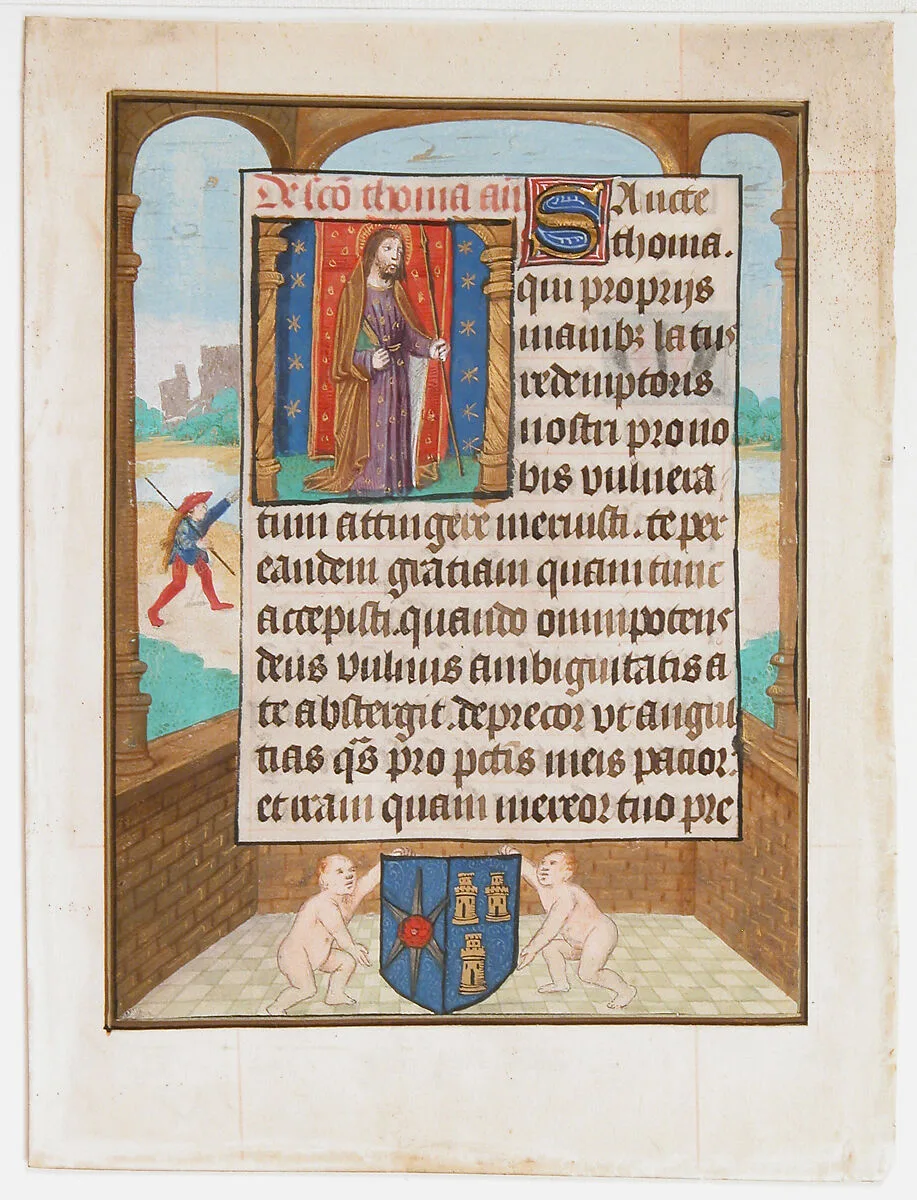 De sco thoma an
Sancte
thoma.
qui proprijs
manibꝫ latus
redemptoris
nostri pro no
bis vulnera
tum attingere meruisti. te per
eandem gratiam quam tunc
accepisti. quando omnipotens
deus vulnus ambiguitatis a
te abstergit. deprecor vt angus
tias qs̃ pro pctīs meis pacior.
et iram quam mereor tuo pre